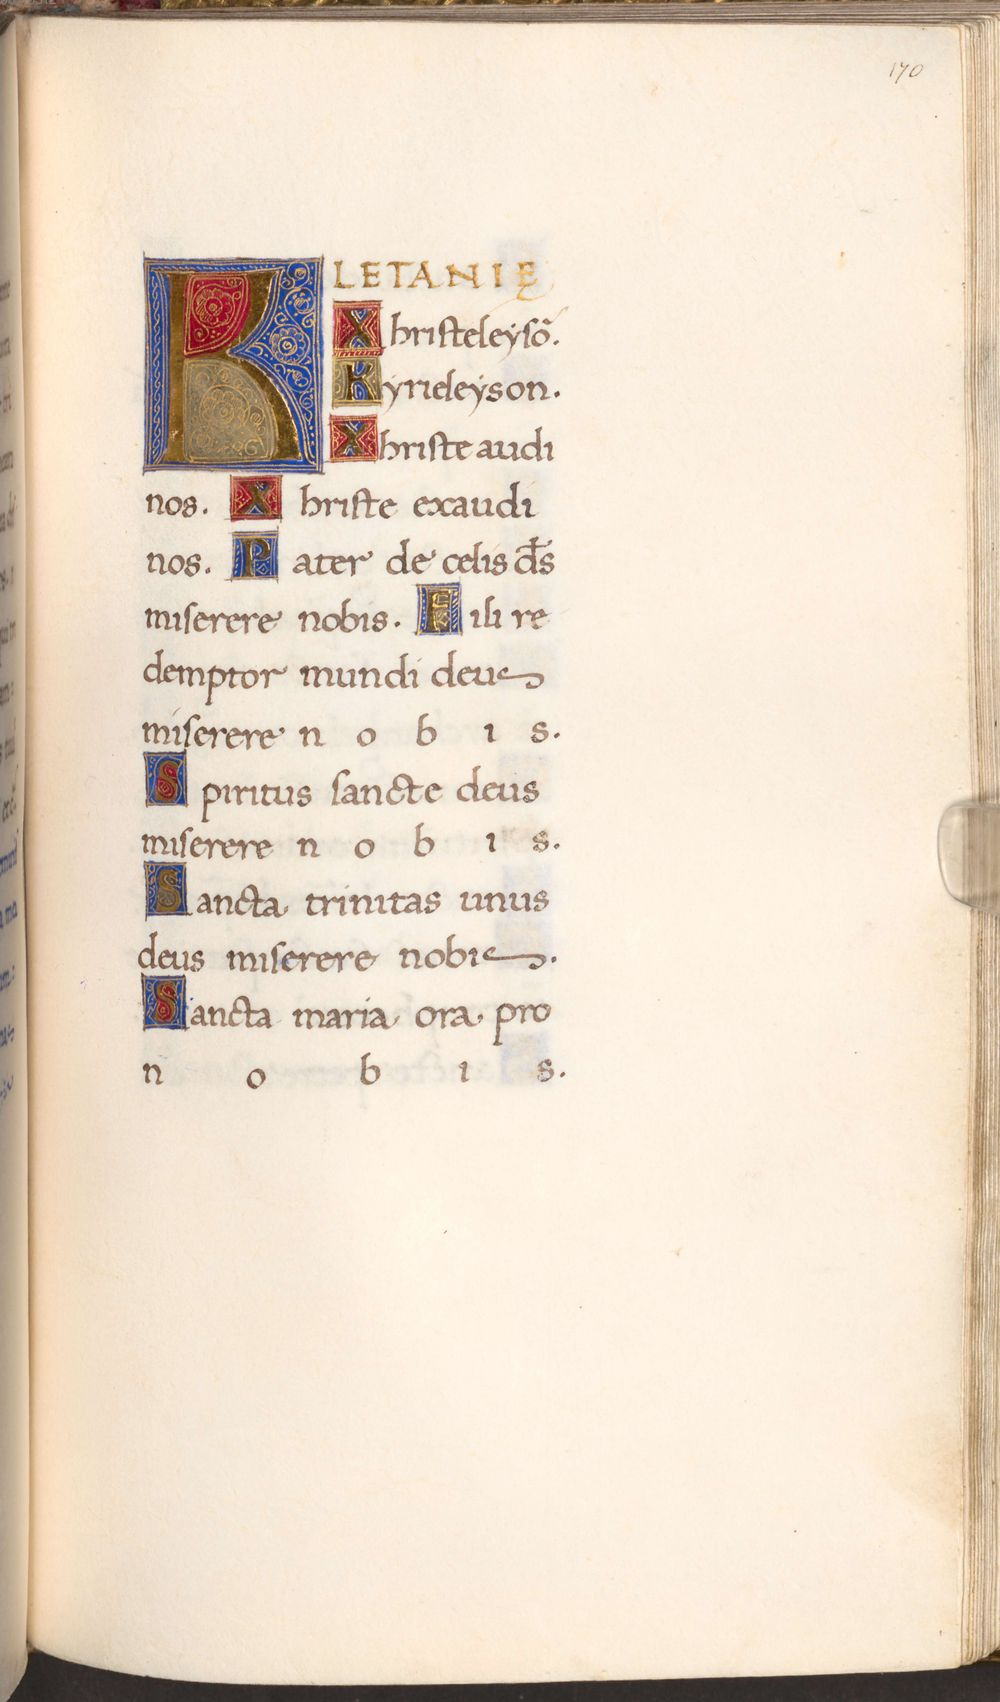 170
K LETANIĘ
Xhristeleysō.
Kyrieleyson.
Xhriste audi
nos. Xhriste exaudi
nos. Pater de celis d̄s
miserere nobis. Fili re
demptor mundi deus
miserere n o b i s.
Spiritus sancte deus
miserere n o b i s.
Sancta trinitas unus
deus miserere nobis.
Sancta maria ora pro
n o b i s.